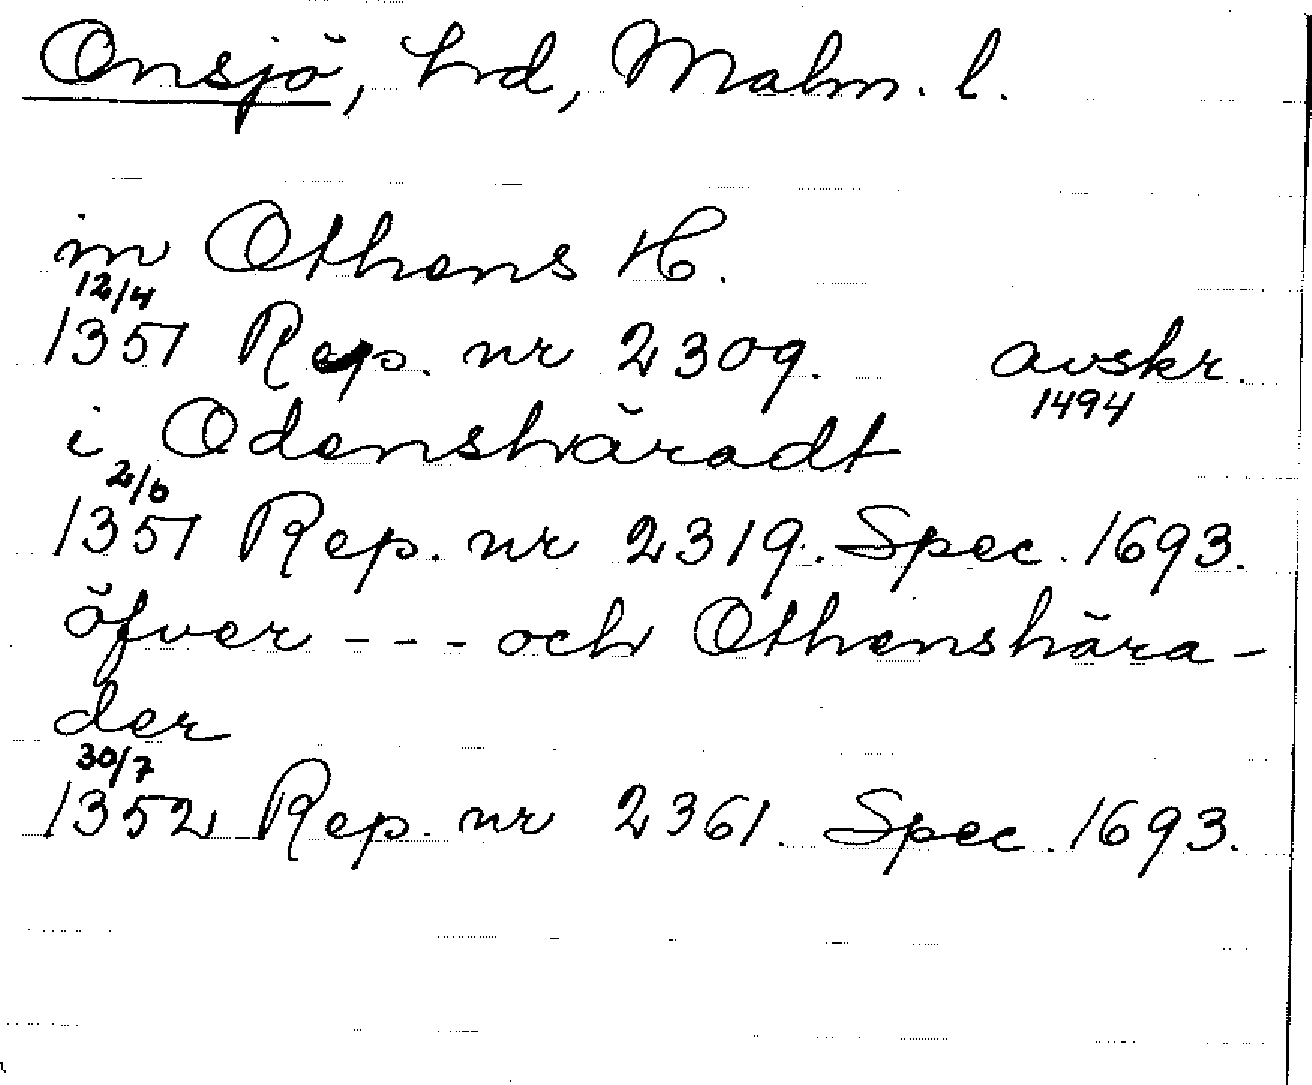 Onsjö, hrd, Malm. l.
in Othens H.
12/4
1351 Rep. nr 2309. avskr. 1494
i Odenshäradt
2/6
1351 Rep. nr 2319. Spec. 1693.
öfver - - - och Othenshära-
der
30/7
1352 Rep. nr 2361. Spec. 1693.